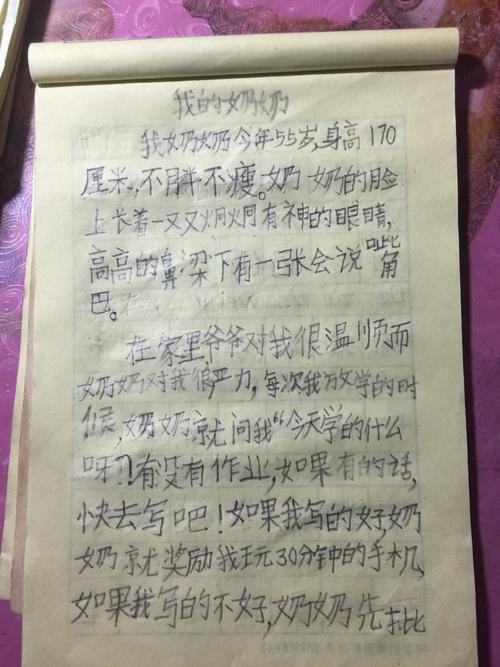 我的奶奶
我奶奶今年55岁,身高170
厘米,不胖不瘦。奶奶的脸
上长着一双又炯炯有神的眼睛,
高高的鼻梁下有一张会说嘴角
巴。
在家里爷爷对我很温顺而
奶奶对我很严力,每次我放学的时
候,奶奶就问我“今天学的什么
呀?有没有作业,如果有的话,
快去写吧!如果我写的好,奶奶
奶就奖励我玩30分钟的手机,
如果我写的不好,奶奶先批